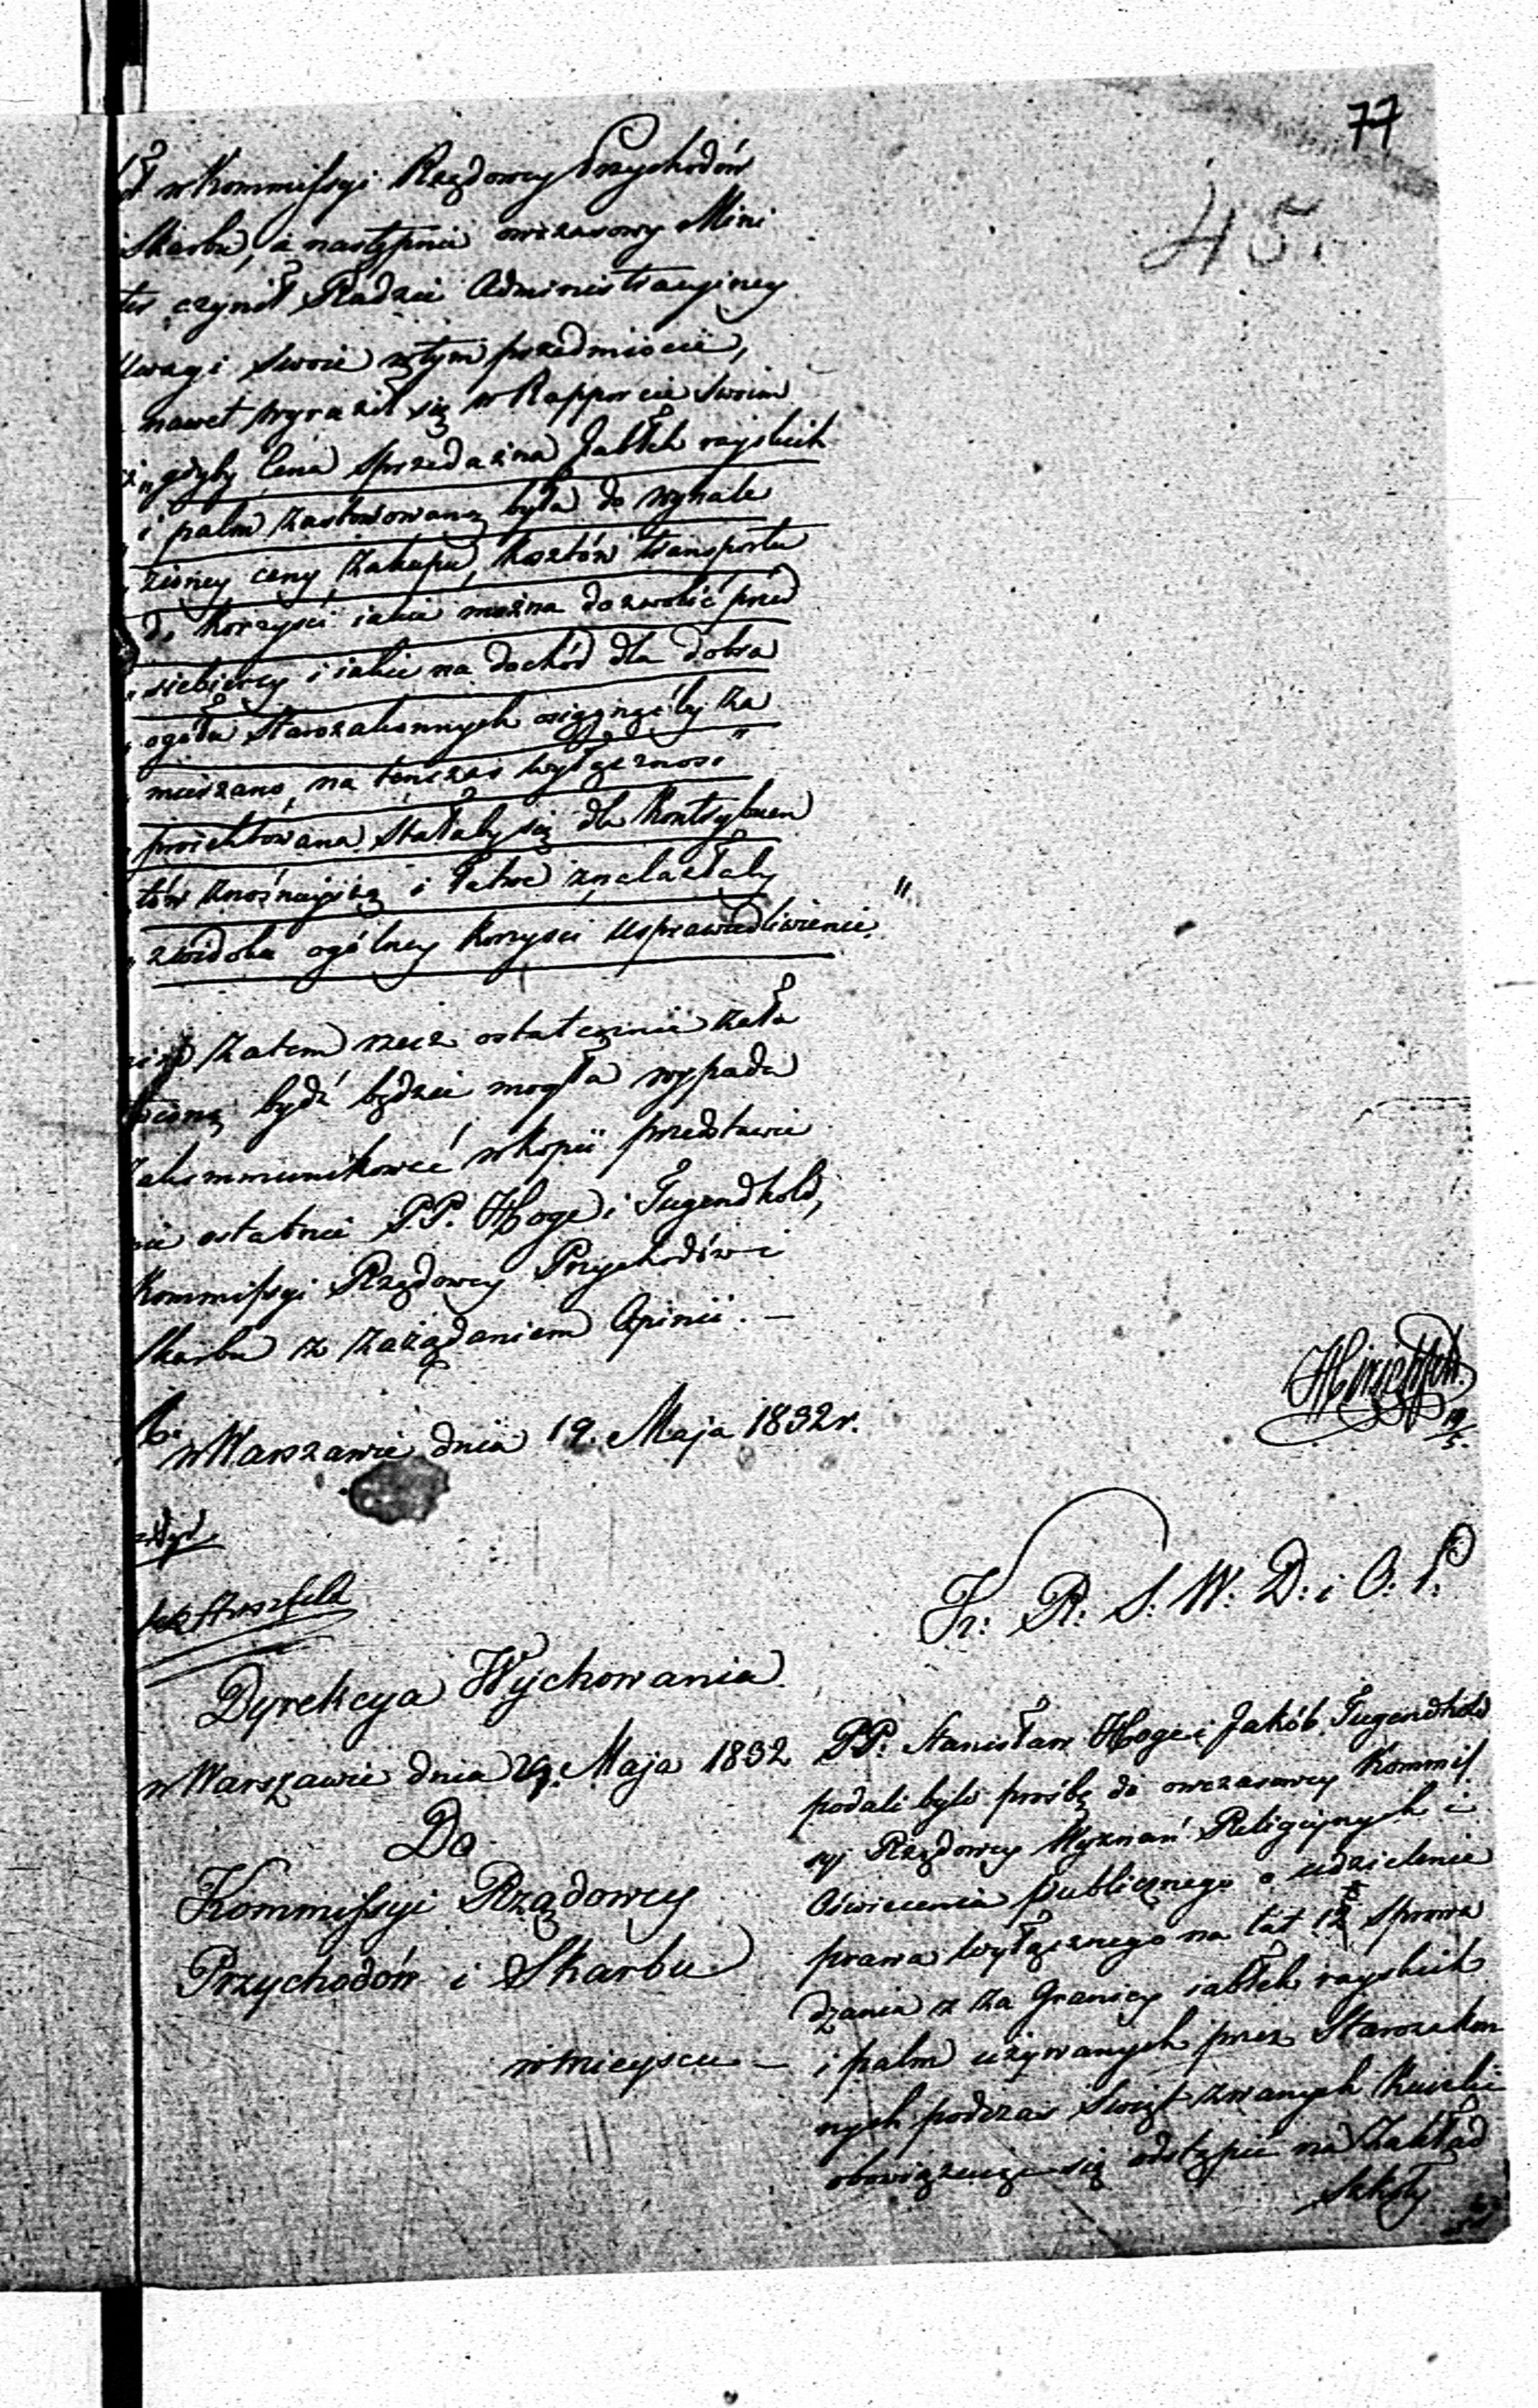 77
45.
w Kommissyi Rządowey Przychodów
Skarbu, a następnie owczasowy Mini
ter czynił Radzie Administracyiney
Uwagi swoie w tym przedmiocie,
nawet wyraził się w Rapporcie swoim
„gdyby Cena sprzedażna Jabłek rayskich
i palm zastosowaną była do wynale
zioney ceny, zakupu, kosztów transportu
do korzyści iakie można dozwolić przed
siebiercy i iakie na dochód dla dobra
ogółu Starozakonnych osiągnąćby za
mierzano, na tenczas wyłączność
proiektowana stałaby się dla kontrybuen
tów znośnieyszą i łatwe znalazłaby
z widoku ogólney korzyści usprawiedliwienie."
zatem rzecz ostatecznie zała
twioną bydź będzie mogła wypada
zakommunikować w kopii przedstawie
nie ostatnie P.P. Hoge i Tugendhold,
Kommissyi Rządowey Przychodów i
Skarbu z zażądaniem Opinii. —
w Warszawie dnia 19. Maja 1832 r.
19/5.
Dyrekcya Wychowania
w Warszawie dnia 29. Maja 1832
Do
Kommissyi Rządowey
Przychodów i Skarbu
w mieyscu —
K: R: S: W: D: i O: P:
PP. Stanisław Hoge i Jakób Tugendhold
podali byli prośbę do owczasowey Kommis
syi Rządowey Wyznań Religiynych i
Oświecenia publicznego o udzielenie
prawa wyłącznego na lat 12 sprowa
dzania z za Granicy iabłek rayskich
i palm używanych przez Starozakon
nych podczas Świąt zwanych Kuczki
obowiązuiąc się odstąpić na Zakład
Szkoły